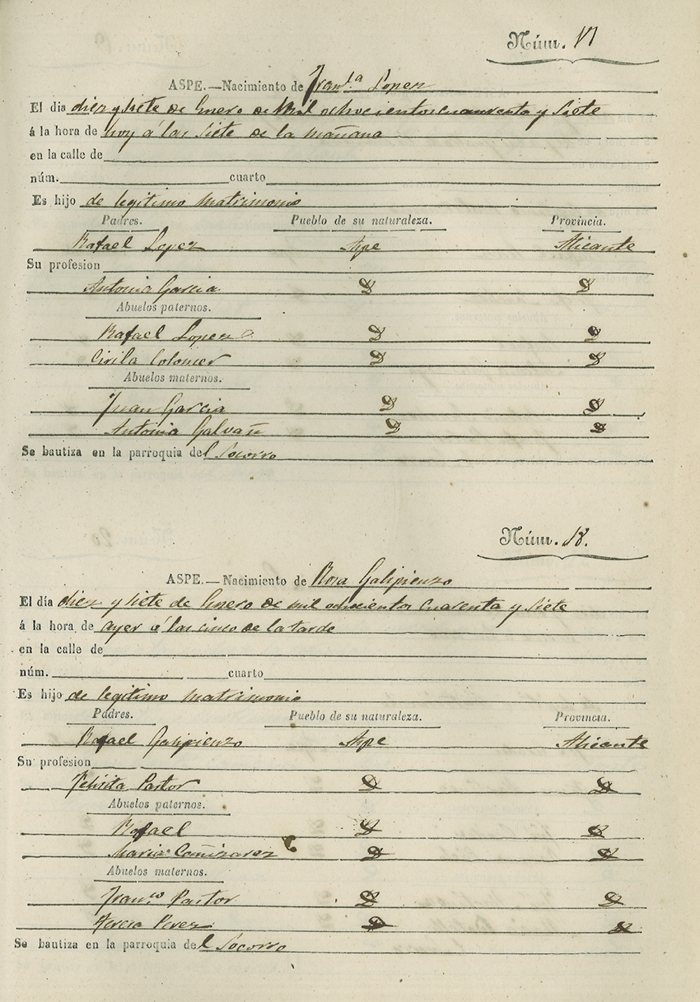 Núm. 17
ASPE.—Nacimiento de Franca Lopez
El dia diez y siete de Enero de Mil ochocientos cuarenta y siete
á la hora de hoy á las siete de la mañana
en la calle de
núm. cuarto
Es hijo de legitimo matrimonio
Padres. Pueblo de su naturaleza. Provincia.
Rafael Lopez Aspe Alicante
Su profesion
Antonia Garcia D D
Abuelos paternos.
Rafael Lopez D D
Cirila Colomer D D
Abuelos maternos.
Juan Garcia D D
Antonia Galvañ D D
Se bautiza en la parroquia del Socorro
Núm. 18.
ASPE.—Nacimiento de Rosa Galipienzo
El día diez y siete de Enero de mil ochocientos cuarenta y siete
á la hora de ayer á las cinco de la tarde
en la calle de
núm. cuarto
Es hijo de legitimo matrimonio
Padres. Pueblo de su naturaleza. Provincia.
Rafael Galipienzo Aspe Alicante
Su profesion
Felicita Pastor D D
Abuelos paternos.
Rafael D D
Maria Cañizarez D D
Abuelos maternos.
Franco Pastor D D
Teresa Perez D D
Se bautiza en la parroquia del Socorro